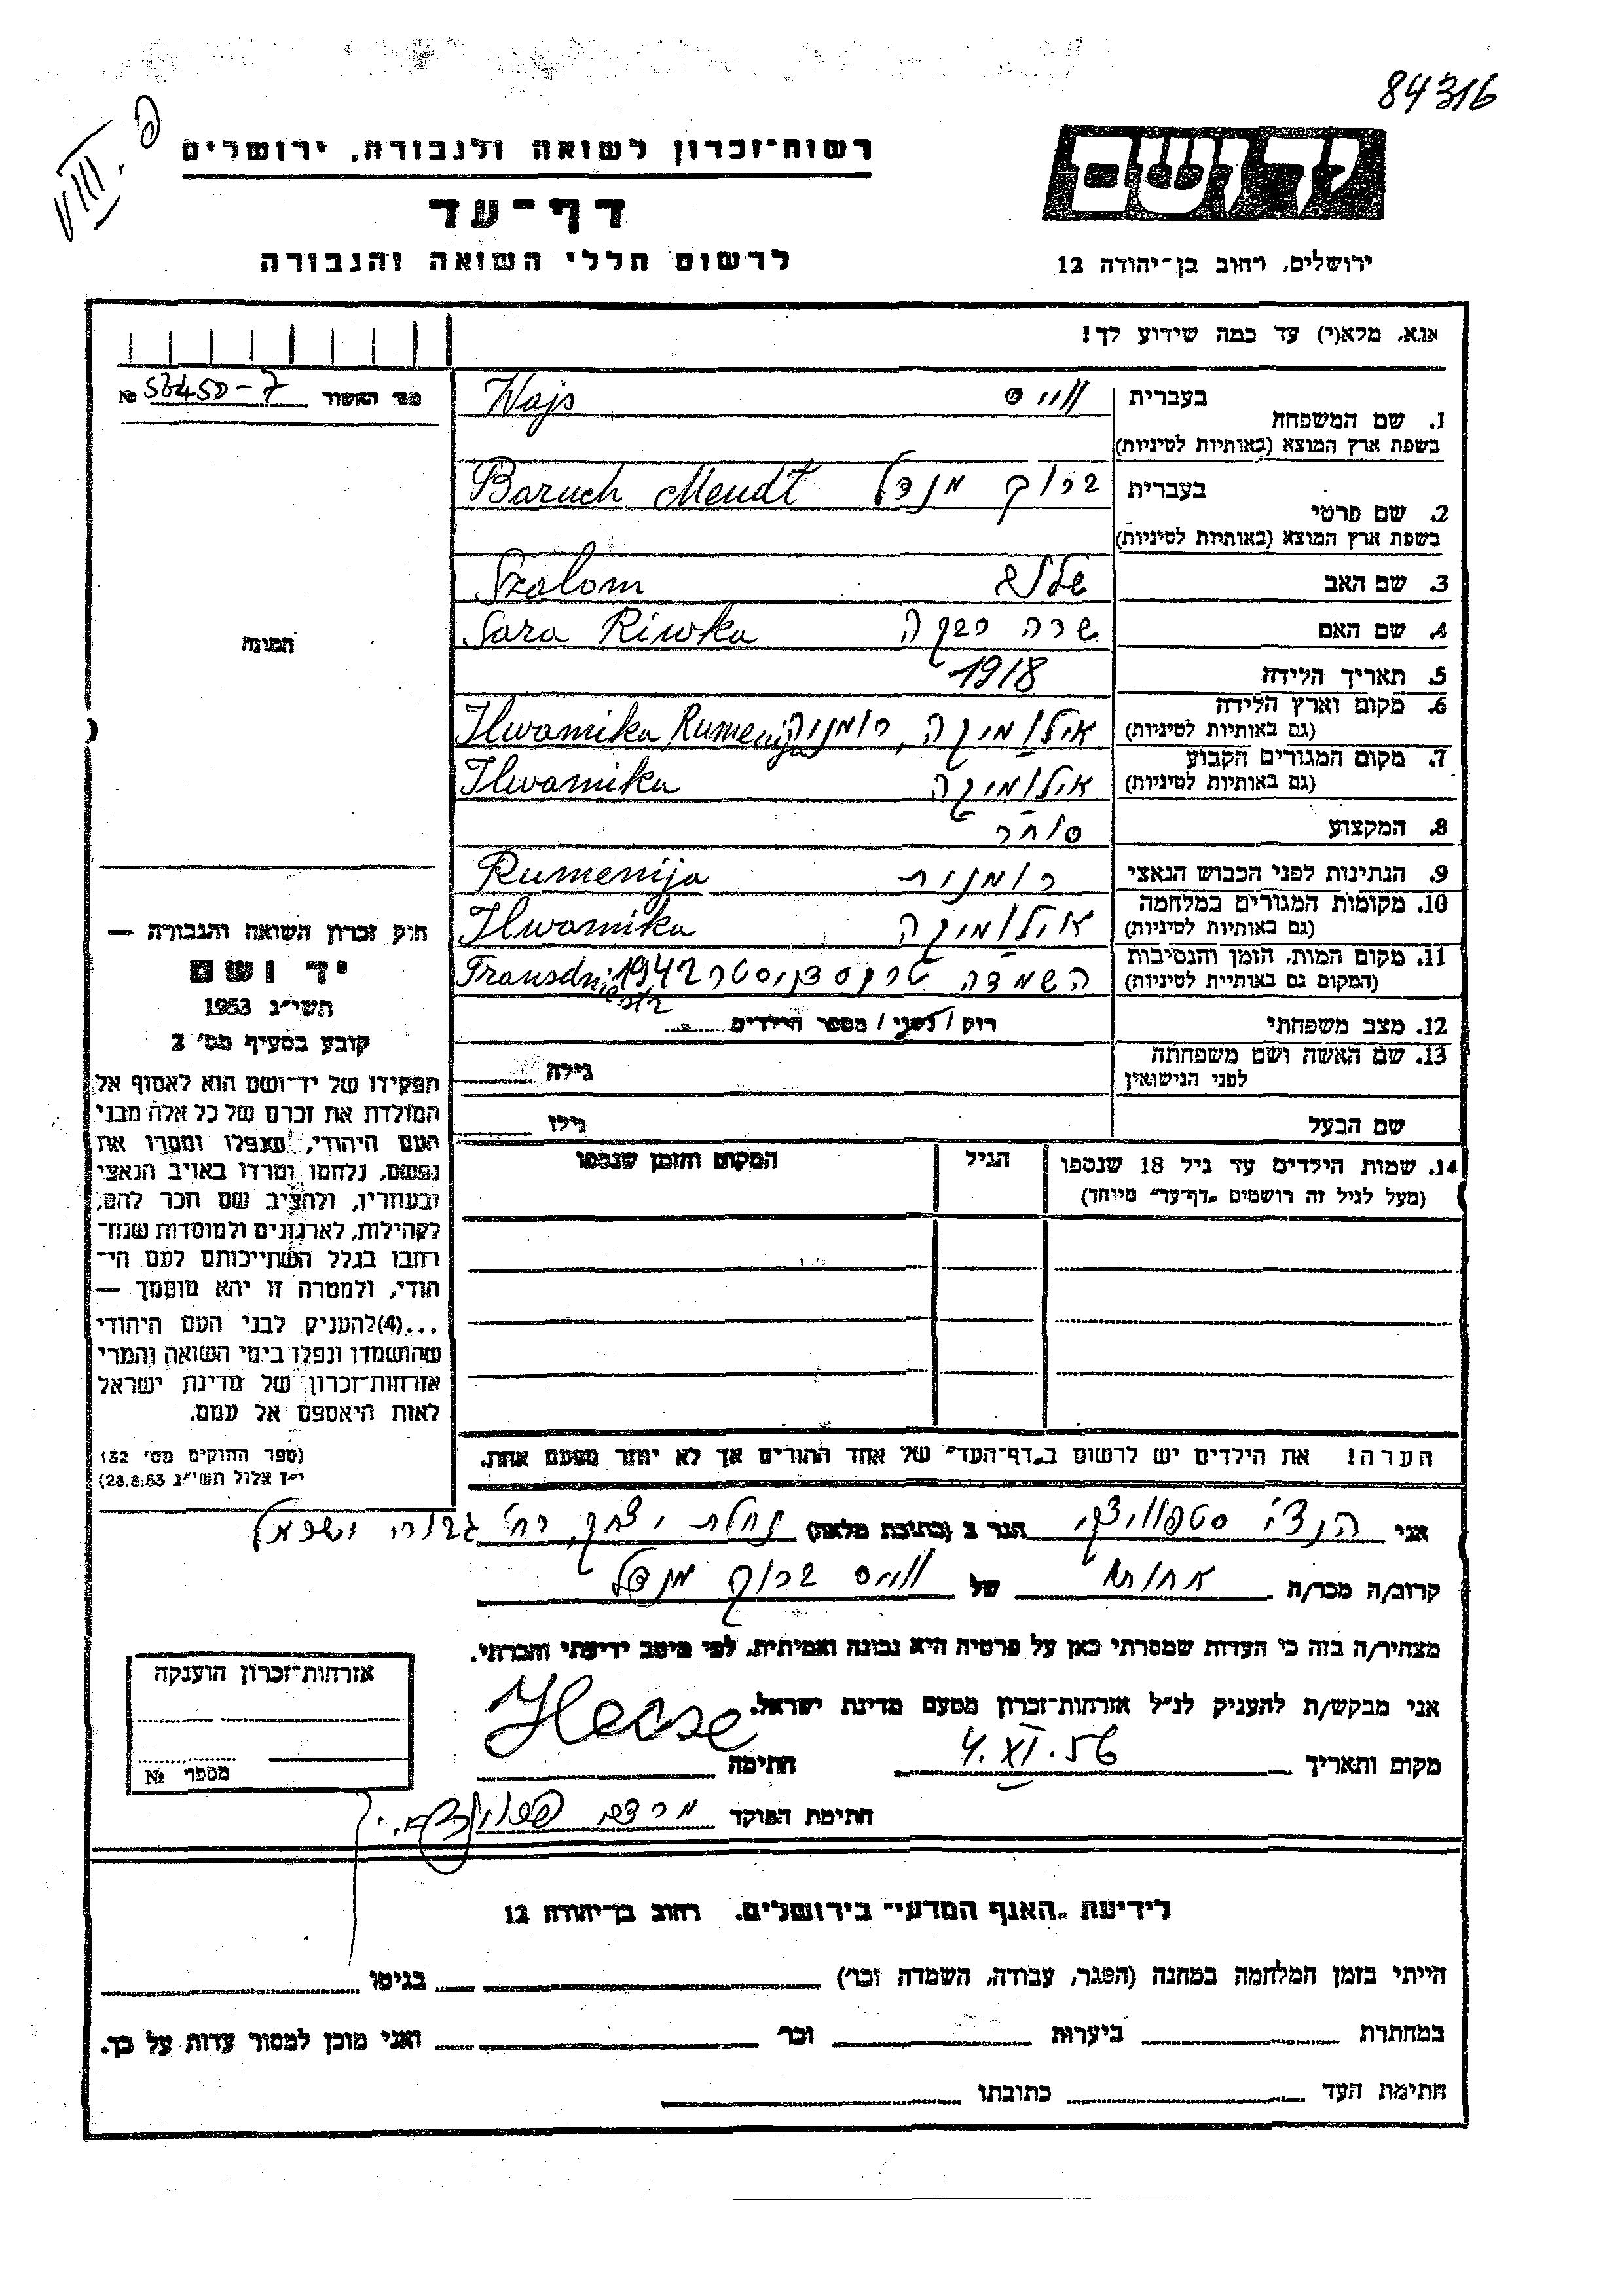 84316
VIII. פ
רשות־זכרון לשואה ולגבורה, ירושלים
דף־עד
לרשום חללי השואה והגבורה
יד ושם
ירושלים, רחוב בן־יהודה 12
אנא, מלא(י) עד כמה שידוע לך!
מס' האשור № 53450-7
1. שם המשפחה בעברית ווייס Wajs
בשפת ארץ המוצא (באותיות לטיניות)
2. שם פרטי בעברית ברוך מנדל Baruch Mendł
בשפת ארץ המוצא (באותיות לטיניות)
3. שם האב שלום Szolom
4. שם האם שרה רבקה Sara Riwka
5. תאריך הלידה 1918
6. מקום וארץ הלידה אילוומיקה, רומניה Ilwamika, Rumenija
(גם באותיות לטיניות)
7. מקום המגורים הקבוע אילוומיקה Ilwamika
(גם באותיות לטיניות)
8. המקצוע סוחר
9. הנתינות לפני הכבוש הנאצי רומנית Rumenija
10. מקומות המגורים במלחמה אילוומיקה Ilwamika
(גם באותיות לטיניות)
11. מקום המות, הזמן והנסיבות השמדה טרנסדניסטר 1942 Transdniestr
(המקום גם באותיית לטיניות)
12. מצב משפחתי רווק / נשוי / מספר הילדים
13. שם האשה ושם משפחתה לפני הנישואין גילה
שם הבעל גילו
14. שמות הילדים עד גיל 18 שנספו הגיל המקום והזמן שנספו
(מעל לגיל זה רושמים "דף־עד" מיוחד)
הערה! את הילדים יש לרשום ב"דף־העד" של אחד ההורים אך לא יותר מפעם אחת.
התמונה
חוק זכרון השואה והגבורה —
יד ושם
תשי"ג 1953
קובע בסעיף מס' 2
תפקידו של יד־ושם הוא לאסוף אל
המולדת את זכרם של כל אלה מבני
העם היהודי, שנפלו ומסרו את
נפשם, נלחמו ומרדו באויב הנאצי
ובעוזריו, ולהציב שם וזכר להם,
לקהילות, לארגונים ולמוסדות שנח־
רחבו בגלל השתייכותם לעם הי־
הודי, ולמטרה זו יהא מוסמך —
...(4) להעניק לבני העם היהודי
שהושמדו ונפלו בימי השואה והמרי
אזרחות־זכרון של מדינת ישראל
לאות היאספם אל עמם.
(ספר החוקים מס' 132
י"ז אלול תשי"ג 28.8.53)
אני הגר ב (כתובת מלאה) נחלת יצחק,
קרוב/ה מכר/ה אחותו של ווייס ברוך מנדל
מצהיר/ה בזה כי העדות שמסרתי כאן על פרטיה היא נכונה ואמיתית, לפי מיטב ידיעתי והכרתי.
אני מבקש/ת להעניק לנ"ל אזרחות־זכרון מטעם מדינת ישראל.
מקום ותאריך 4.XI.56 חתימה
חתימת הפוקד
אזרחות־זכרון הוענקה
מספר №
לידיעת "האגף המדעי" בירושלים, רחוב בן־יהודה 12
הייתי בזמן המלחמה במחנה (הסגר, עבודה, השמדה וכו') בגיטו
במחתרת ביערות וכו' ואני מוכן למסור עדות על כך.
חתימת העד כתובתו